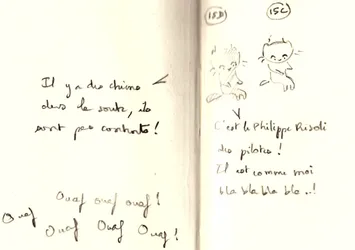 Il y a des chiens
dans la soute, ils
sont pas contents !
Ouaf ouaf ouaf !
Ouaf Ouaf Ouaf Ouaf !
15D 15C
C'est le Philippe Risoli
des pilotes !
Il est comme moi
bla bla bla bla ..!